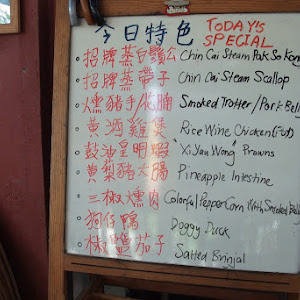 今日特色 TODAY'S SPECIAL
招牌蒸白鬚公 Chin Cai Steam Pak So Kon
招牌蒸带子 Chin Cai Steam Scallop
燻豬手/花腩 Smoked Trotter/Pork Belly
黃酒雞煲 Rice Wine Chicken (Pot)
豉油皇明蝦 "Xi Yau Wong" Prawns
黃梨豬大腸 Pineapple Intestine
三椒燻肉 Colorful Pepper Corn With Smoked Bell
狗仔鴨 Doggy Duck
椒鹽茄子 Salted Brinjal